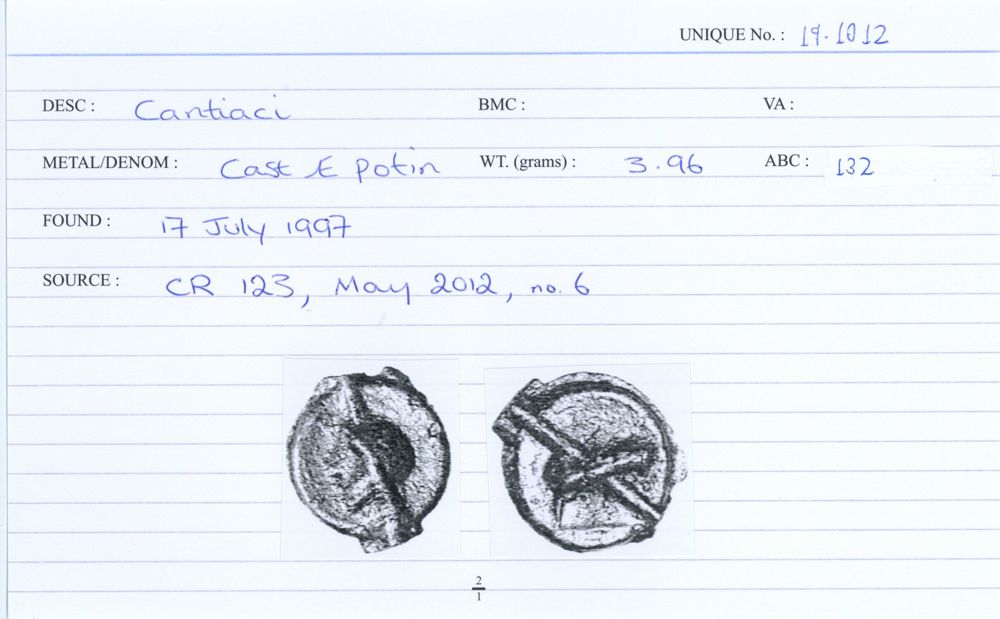 UNIQUE No. : 19.1012
DESC : Cantiaci BMC : VA :
METAL/DENOM : Cast Æ Potin WT. (grams) : 3.96 ABC : 132
FOUND : 17 July 1997
SOURCE : CR 123, May 2012, no. 6
2
1